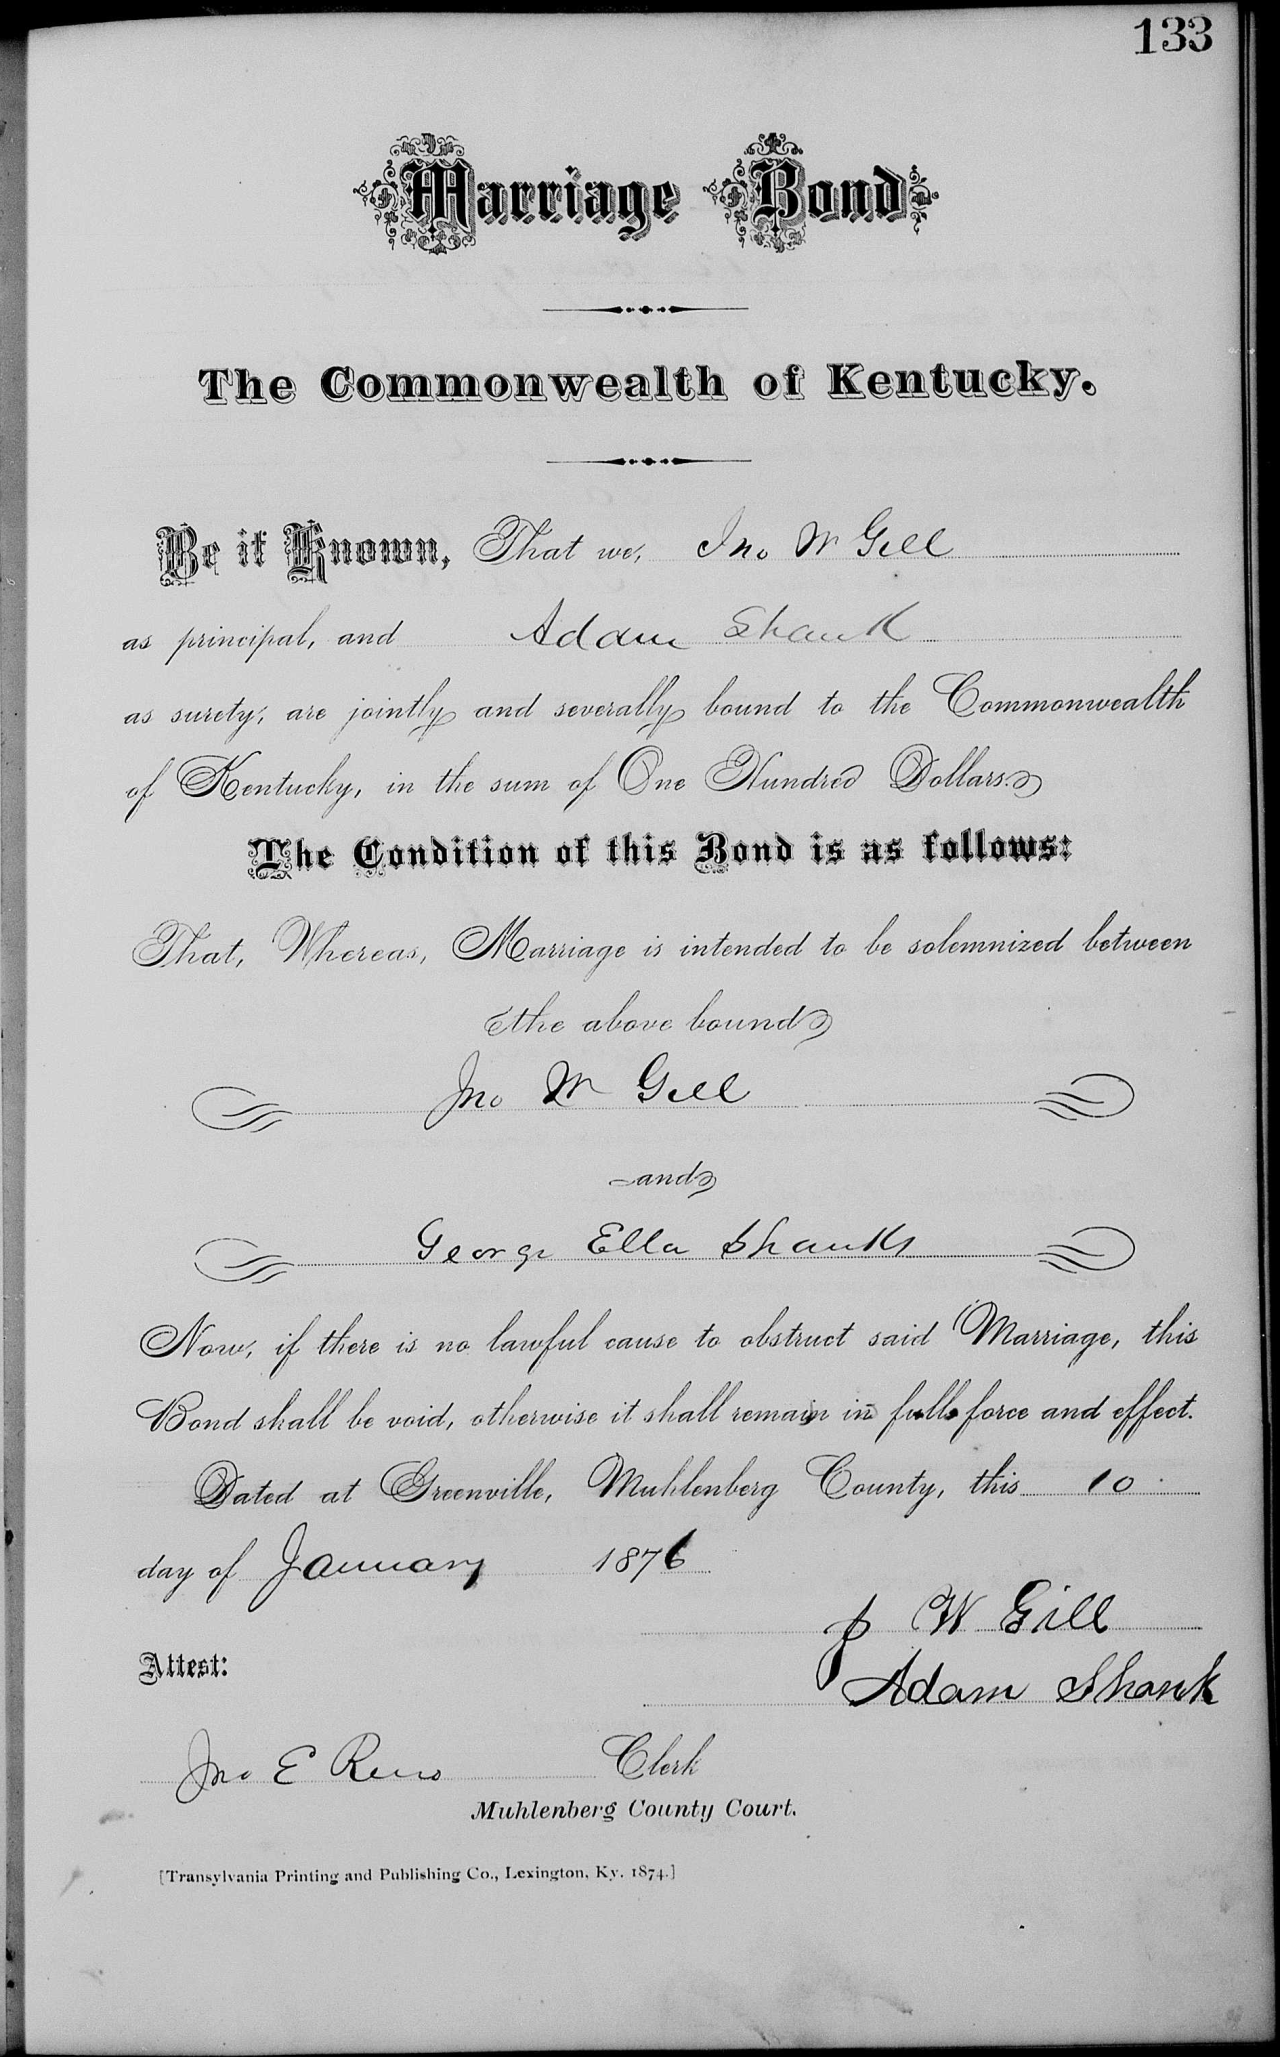 133
Marriage Bond
The Commonwealth of Kentucky.
Be it Known, That we, Jno W Gill
as principal, and Adam Shank
as surety, are jointly and severally bound to the Commonwealth
of Kentucky, in the sum of One Hundred Dollars.
The Condition of this Bond is as follows:
That, Whereas, Marriage is intended to be solemnized between
the above bound
Jno W Gill
and
George Ella Shanks
Now, if there is no lawful cause to obstruct said Marriage, this
Bond shall be void, otherwise it shall remain in full force and effect.
Dated at Greenville, Muhlenberg County, this 10
day of January 1876
J W Gill
Attest:
Adam Shank
Jno E Reno Clerk
Muhlenberg County Court.
[Transylvania Printing and Publishing Co., Lexington, Ky. 1874.]